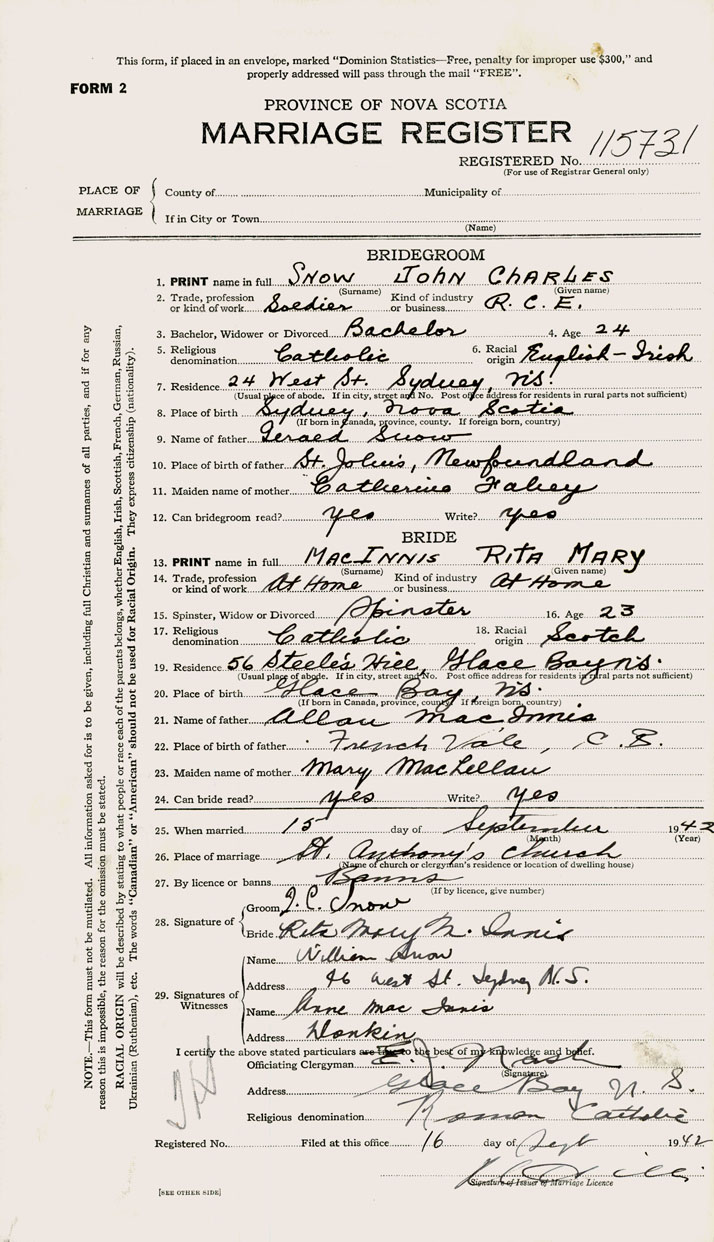 This form, if placed in an envelope, marked “Dominion Statistics—Free, penalty for improper use $300,” and
properly addressed will pass through the mail “FREE”.
FORM 2
PROVINCE OF NOVA SCOTIA
MARRIAGE REGISTER
REGISTERED No. 115731
(For use of Registrar General only)
PLACE OF MARRIAGE
County of Municipality of
If in City or Town
(Name)
BRIDEGROOM
1. PRINT name in full SNOW JOHN CHARLES
(Surname) (Given name)
2. Trade, profession or kind of work Soldier Kind of industry or business R.C.E.
3. Bachelor, Widower or Divorced Bachelor 4. Age 24
5. Religious denomination Catholic 6. Racial origin English-Irish
7. Residence 24 West St. Sydney, N.S.
(Usual place of abode. If in city, street and No. Post office address for residents in rural parts not sufficient)
8. Place of birth Sydney, Nova Scotia
(If born in Canada, province, county. If foreign born, country)
9. Name of father Gerald Snow
10. Place of birth of father St. John's, Newfoundland
11. Maiden name of mother Catherine Fahey
12. Can bridegroom read? yes Write? yes
BRIDE
13. PRINT name in full MACINNIS RITA MARY
(Surname) (Given name)
14. Trade, profession or kind of work At Home Kind of industry or business At Home
15. Spinster, Widow or Divorced Spinster 16. Age 23
17. Religious denomination Catholic 18. Racial origin Scotch
19. Residence 56 Steele's Hill, Glace Bay N.S.
(Usual place of abode. If in city, street and No. Post office address for residents in rural parts not sufficient)
20. Place of birth Glace Bay, N.S.
(If born in Canada, province, county. If foreign born, country)
21. Name of father Allan MacInnis
22. Place of birth of father French Vale, C.B.
23. Maiden name of mother Mary MacLellan
24. Can bride read? yes Write? yes
25. When married 15 day of September 1942
(Month) (Year)
26. Place of marriage St. Anthony's Church
(Name of church or clergyman's residence or location of dwelling house)
27. By licence or banns Banns
(If by licence, give number)
28. Signature of
Groom J.C. Snow
Bride Rita Mary Mc Innis
29. Signatures of Witnesses
Name William Snow
Address 46 West St. Sydney N.S.
Name Anne Mac Innis
Address Donkin
I certify the above stated particulars are true to the best of my knowledge and belief.
Officiating Clergyman E. J. Nash
(Signature)
Address Glace Bay N. S.
Religious denomination Roman Catholic
Registered No. Filed at this office 16 day of Sept 1942
Signature of Issuer of Marriage Licence
[SEE OTHER SIDE]
NOTE.—This form must not be mutilated. All information asked for is to be given, including full Christian and surnames of all parties, and if for any
reason this is impossible, the reason for the omission must be stated.
RACIAL ORIGIN will be described by stating to what people or race each of the parents belongs, whether English, Irish, Scottish, French, German, Russian,
Ukrainian (Ruthenian), etc. The words “Canadian” or “American” should not be used for Racial Origin. They express citizenship (nationality).